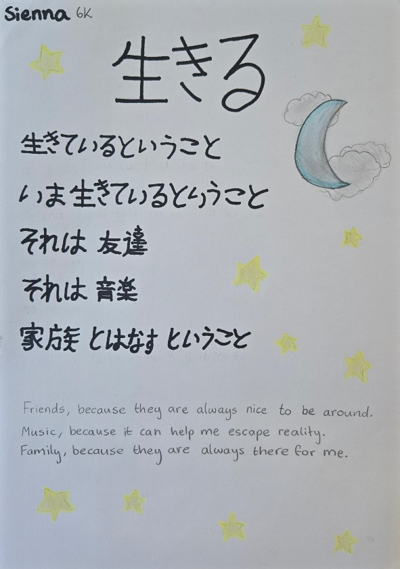 Sienna 6K
生きる
生きているということ
いま生きているということ
それは 友達
それは 音楽
家族 とはなす ということ
Friends, because they are always nice to be around.
Music, because it can help me escape reality.
Family, because they are always there for me.